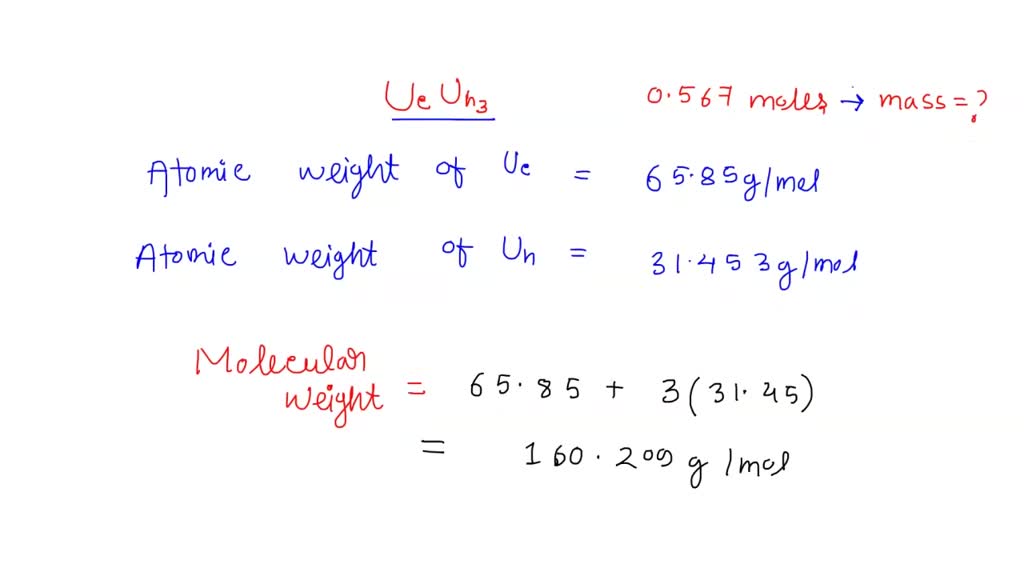 UeUn3 0.567 moles → mass = ?
Atomic weight of Ue = 65.85g/mol
Atomic weight of Un = 31.453g/mol
Molecular
Weight = 65.85 + 3(31.45)
= 160.209 g/mol